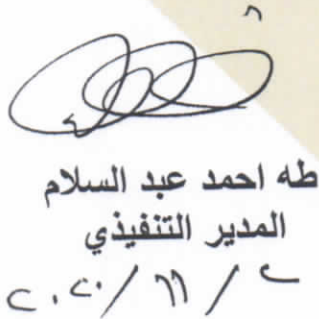 طه احمد عبد السلام
المدير التنفيذي
٢ / ١١ / ٢٠٢٠